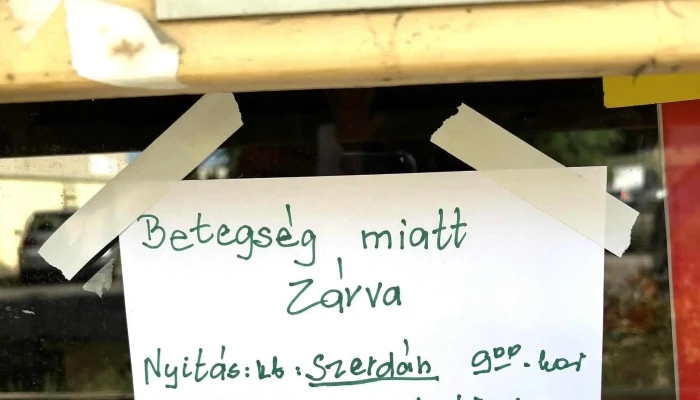 Betegség miatt
Zárva
Nyitás: kb: Szerdán 9⁰⁰-kor